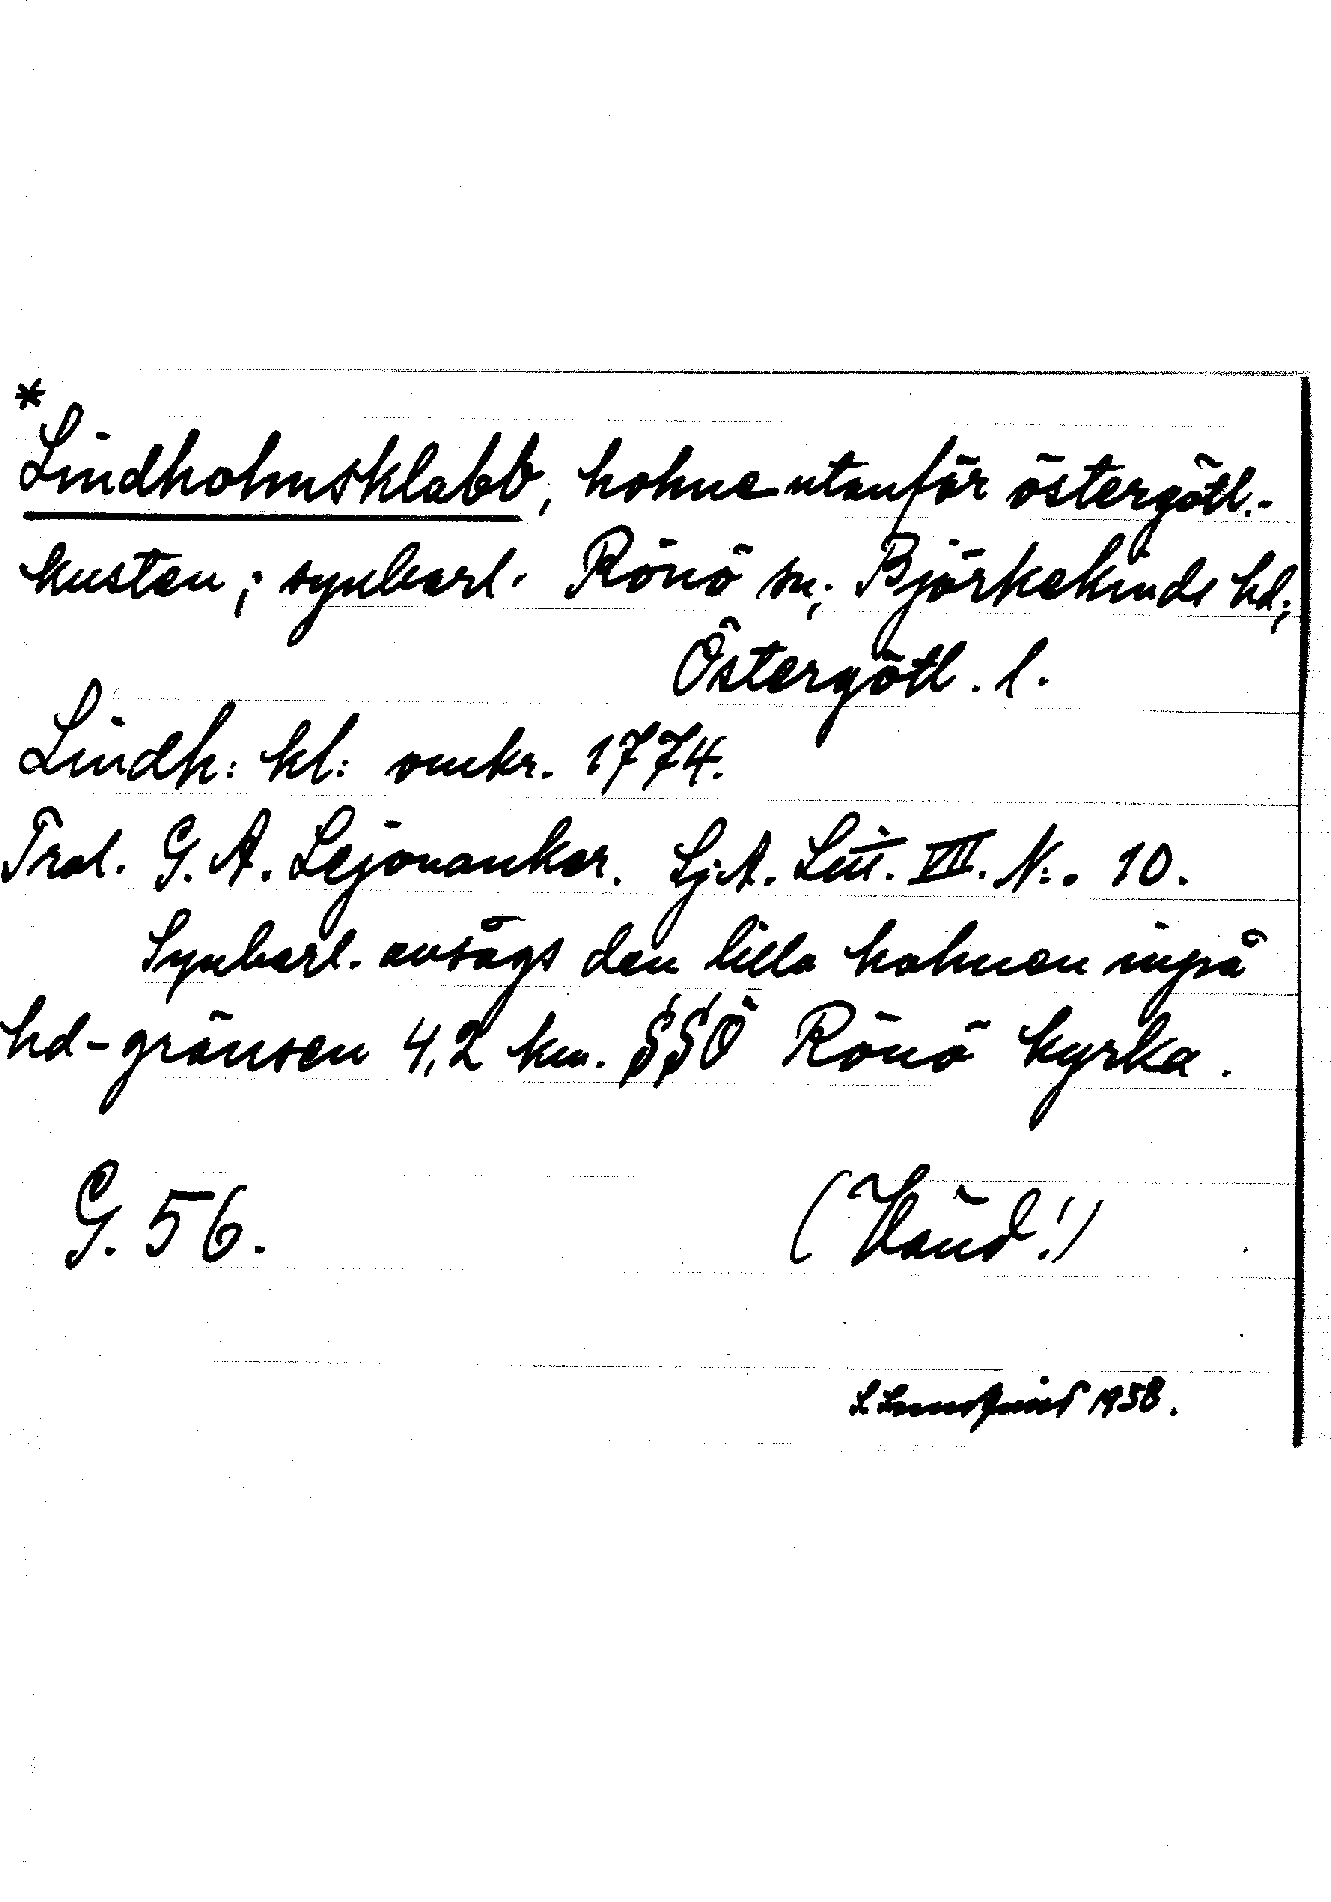 *
Lindholmsklabb, holme utanför östergötl.-
kusten; synbarl. Rönö sn; Björkekinds hd;
Östergötl. l.
Lindh: kl: omkr. 1774.
Trol. G. A. Lejonankar. Lj:A. Litt. VII. N:. 10.
Synbarl. avsågs den lilla holmen inpå
hd-gränsen 4,2 km. SSÖ Rönö kyrka.
G. 56. (Vänd!)
1938.